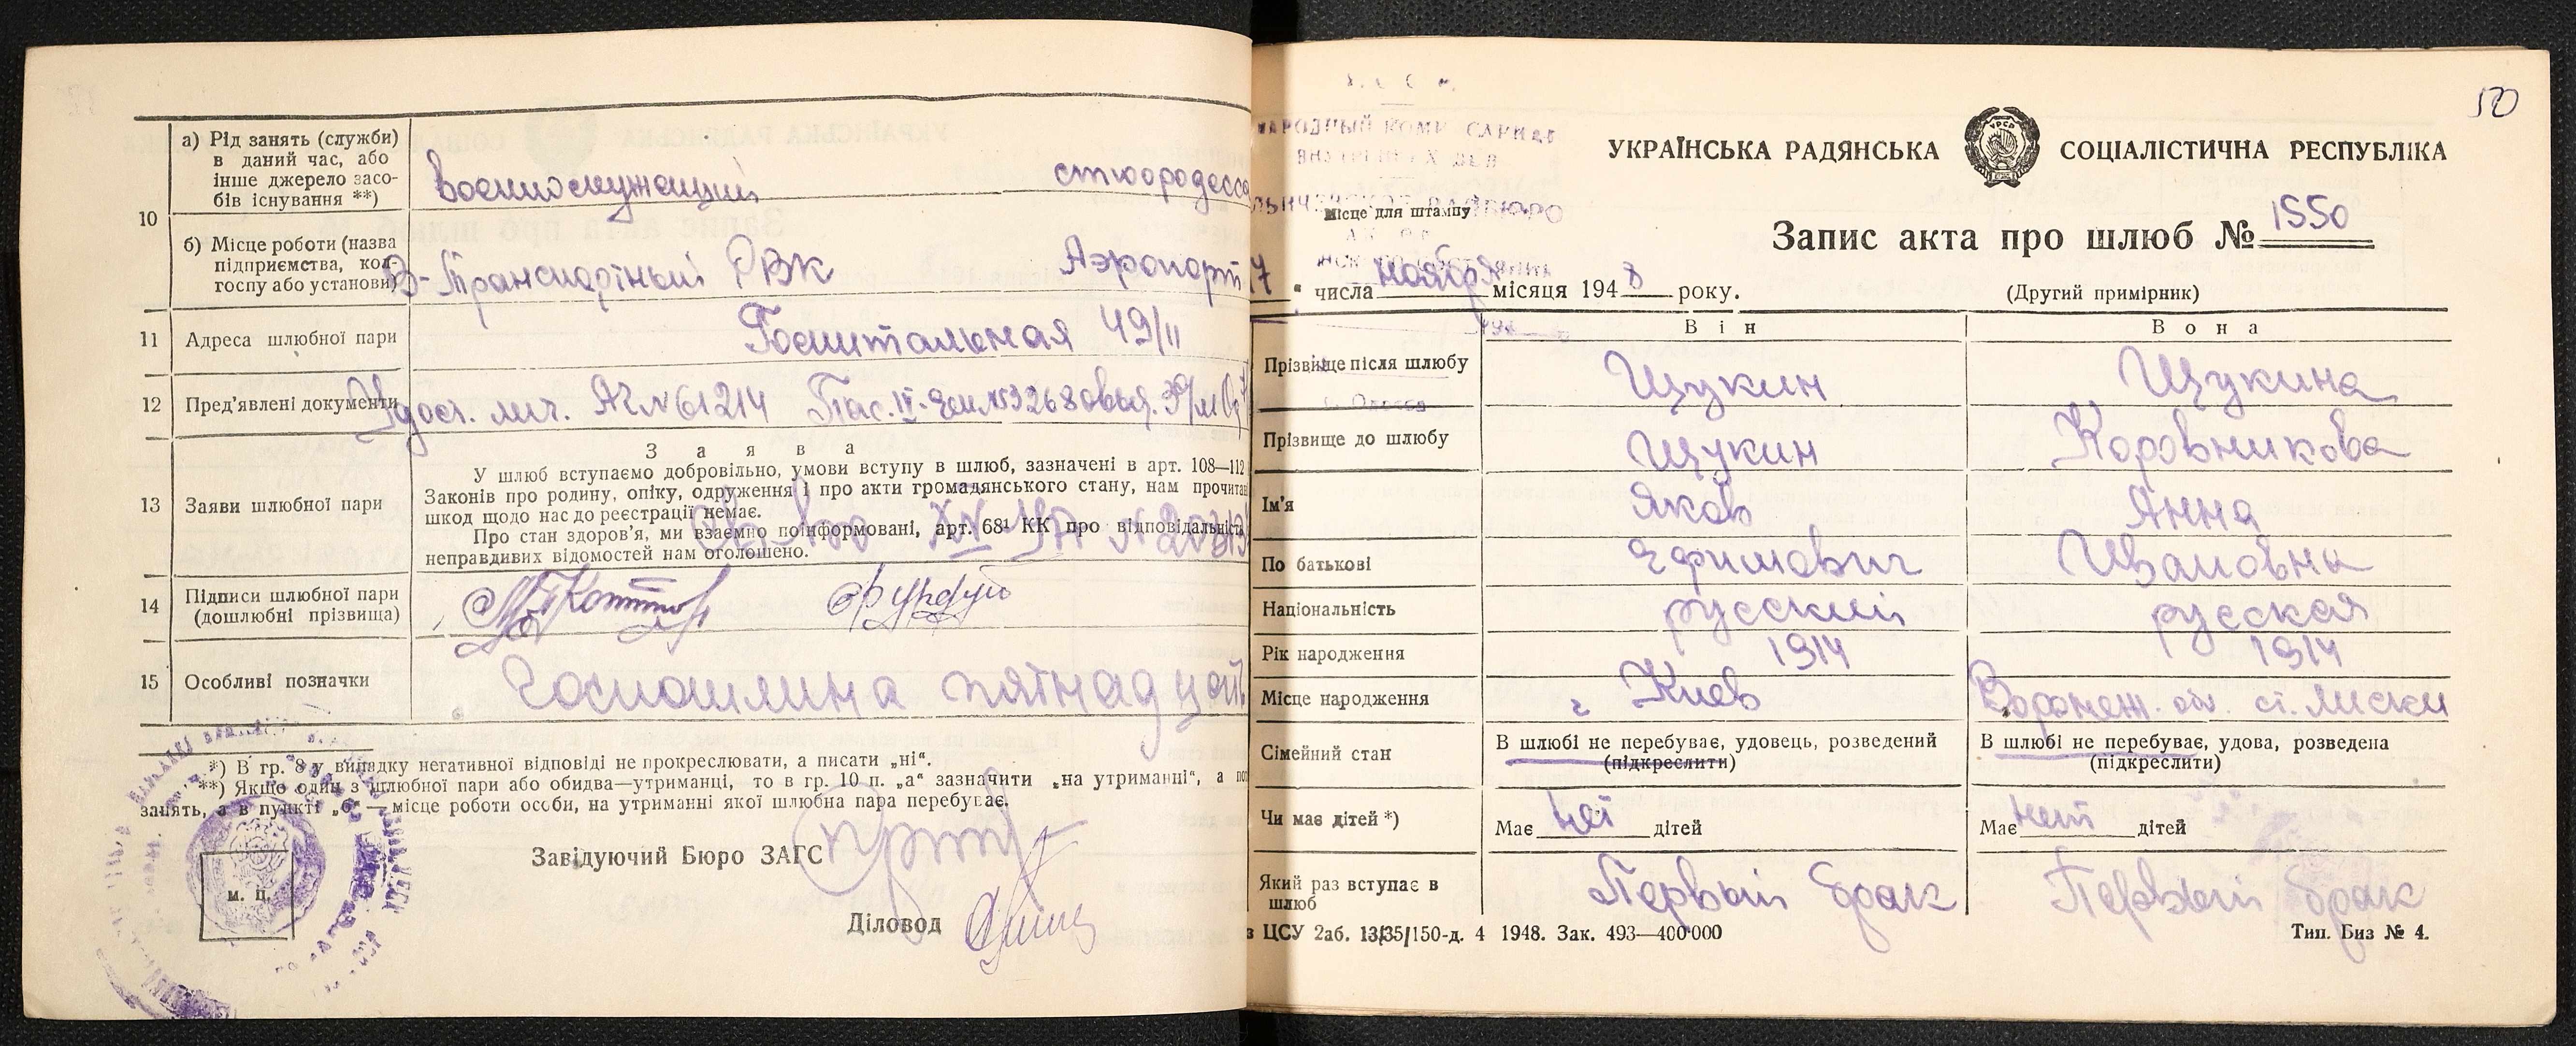 10
а) Рід занять (служби)
в даний час, або
інше джерело засо-
бів існування **)
военнослужащий
стюордесса
б) Місце роботи (назва
підприємства, кол-
госпу або установи)
В-Транспортный РВК
Аэропорт
11 Адреса шлюбної пари
Госпитальная 49/11
12 Пред'явлені документи
Удост. лич. № 61214 Пас.
13 Заяви шлюбної пари
З а я в а
У шлюб вступаємо добровільно, умови вступу в шлюб, зазначені в арт. 108—112
Законів про родину, опіку, одруження і про акти громадянського стану, нам прочитан
шкод щодо нас до реєстрації немає.
Про стан здоров'я, ми взаємно поінформовані, арт. 68¹ КК про відповідальність
неправдивих відомостей нам оголошено.
14 Підписи шлюбної пари
(дошлюбні прізвища)
15 Особливі позначки
Госпошлина пятнадцать
*) В гр. 8 у випадку негативної відповіді не прокреслювати, а писати „ні“.
**) Якщо один з шлюбної пари або обидва—утриманці, то в гр. 10 п. „а“ зазначити „на утриманні“, а по
занять, а в пункті „б“—місце роботи особи, на утриманні якої шлюбна пара перебуває.
Завідуючий Бюро ЗАГС
Діловод
м. п.
50
НАРОДНЫЙ КОМИССАРИАТ
ВНУТРЕННИХ ДЕЛ
Місце для штампу
УКРАЇНСЬКА РАДЯНСЬКА СОЦІАЛІСТИЧНА РЕСПУБЛІКА
УРСР
Запис акта про шлюб № 1550
7 “ числа ноября місяця 1948 року.
(Другий примірник)
В і н
В о н а
Прізвище після шлюбу
Щукин
Щукина
г. Одесса
Прізвище до шлюбу
Щукин
Коровникова
Ім'я
Яков
Анна
По батькові
Ефимович
Ивановна
Національність
русский
русская
Рік народження
1914
1914
Місце народження
г Киев
Воронеж. обл. ст. Лиски
Сімейний стан
В шлюбі не перебуває, удовець, розведений
(підкреслити)
В шлюбі не перебуває, удова, розведена
(підкреслити)
Чи має дітей *)
Має нет дітей
Має нет дітей
Який раз вступає в
шлюб
Первый брак
Первый брак
з ЦСУ 2аб. 13/35/150-д. 4 1948. Зак. 493—400000
Тип. Биз № 4.